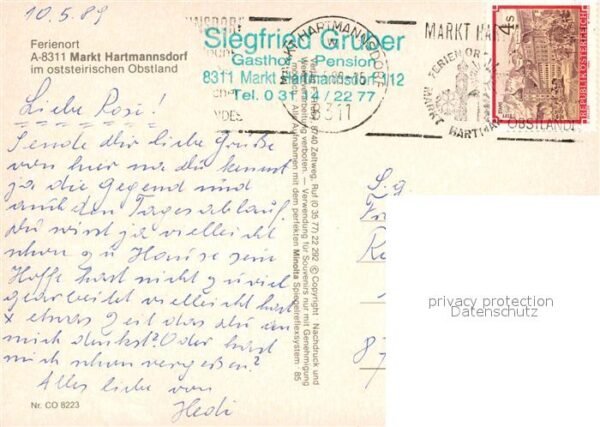 10.5.89
Ferienort
A-8311 Markt Hartmannsdorf
im oststeirischen Obstland
Siegfried Gruber
Gasthof Pension
8311 Markt Hartmannsdorf 112
Tel. 0 31 14 / 22 77
MARKT HARTMANNSDORF
8311
MARKT HAR
FERIENOR
MARKT
HARTMA
OBSTLAND
4 S
REPUBLIK ÖSTERREICH
Liebe Rosi!
Sende dir liebe Grüße
von hier na du kennst
ja die Gegend und
auch den Tagesablauf,
du wirst ja vielleicht
schon zu Hause sein
Hoffe hast nicht zu viel
gearbeitet vielleicht hast
etwas Zeit das du an
mich denkst? Oder hast
mich schon vergessen?
Alles liebe von
Hedi
Nr. CO 8223
8740 Zeltweg, Ruf (0 35 77) 22 292 © Copyright Nachdruck und
Weiterverarbeitung verboten. — Verwendung für Souvenirs nur mit Genehmigung
möglich. Alle Aufnahmen mit dem perfekten Minolta Spiegelreflexsystem · 85
S. g
privacy protection
Datenschutz
87